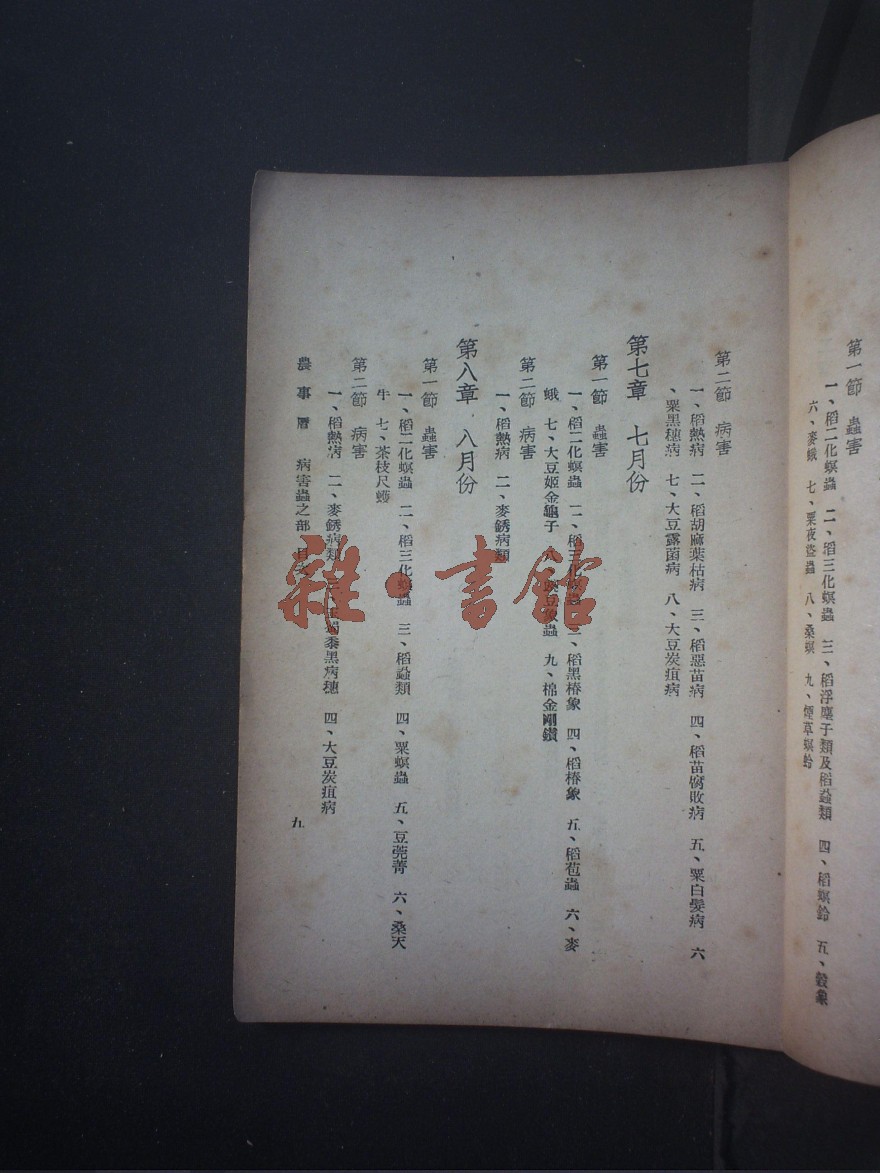 第一節 蟲害
一、稻二化螟蟲 二、稻三化螟蟲 三、稻浮塵子類及稻蝨類 四、稻螟蛉 五、穀象
六、麥蛾 七、粟夜盜蟲 八、桑螟 九、煙草螟蛉
第二節 病害
一、稻熱病 二、稻胡麻葉枯病 三、稻惡苗病 四、稻苗腐敗病 五、粟白髮病 六
、粟黑穗病 七、大豆露菌病 八、大豆炭疽病
第七章 七月份
第一節 蟲害
一、稻二化螟蟲 二、稻三化螟蟲 三、稻黑椿象 四、稻椿象 五、稻苞蟲 六、麥
蛾 七、大豆姬金龜子 八、豌豆象蟲 九、棉金剛鑽
第二節 病害
一、稻熱病 二、麥銹病類
第八章 八月份
第一節 蟲害
一、稻二化螟蟲 二、稻三化螟蟲 三、稻蝨類 四、粟螟蟲 五、豆莞菁 六、桑天
牛 七、茶枝尺蠖
第二節 病害
一、稻熱病 二、麥銹病類 三、蜀黍黑病穗 四、大豆炭疽病
農事曆 病害蟲之部 目次
九
雜·書館